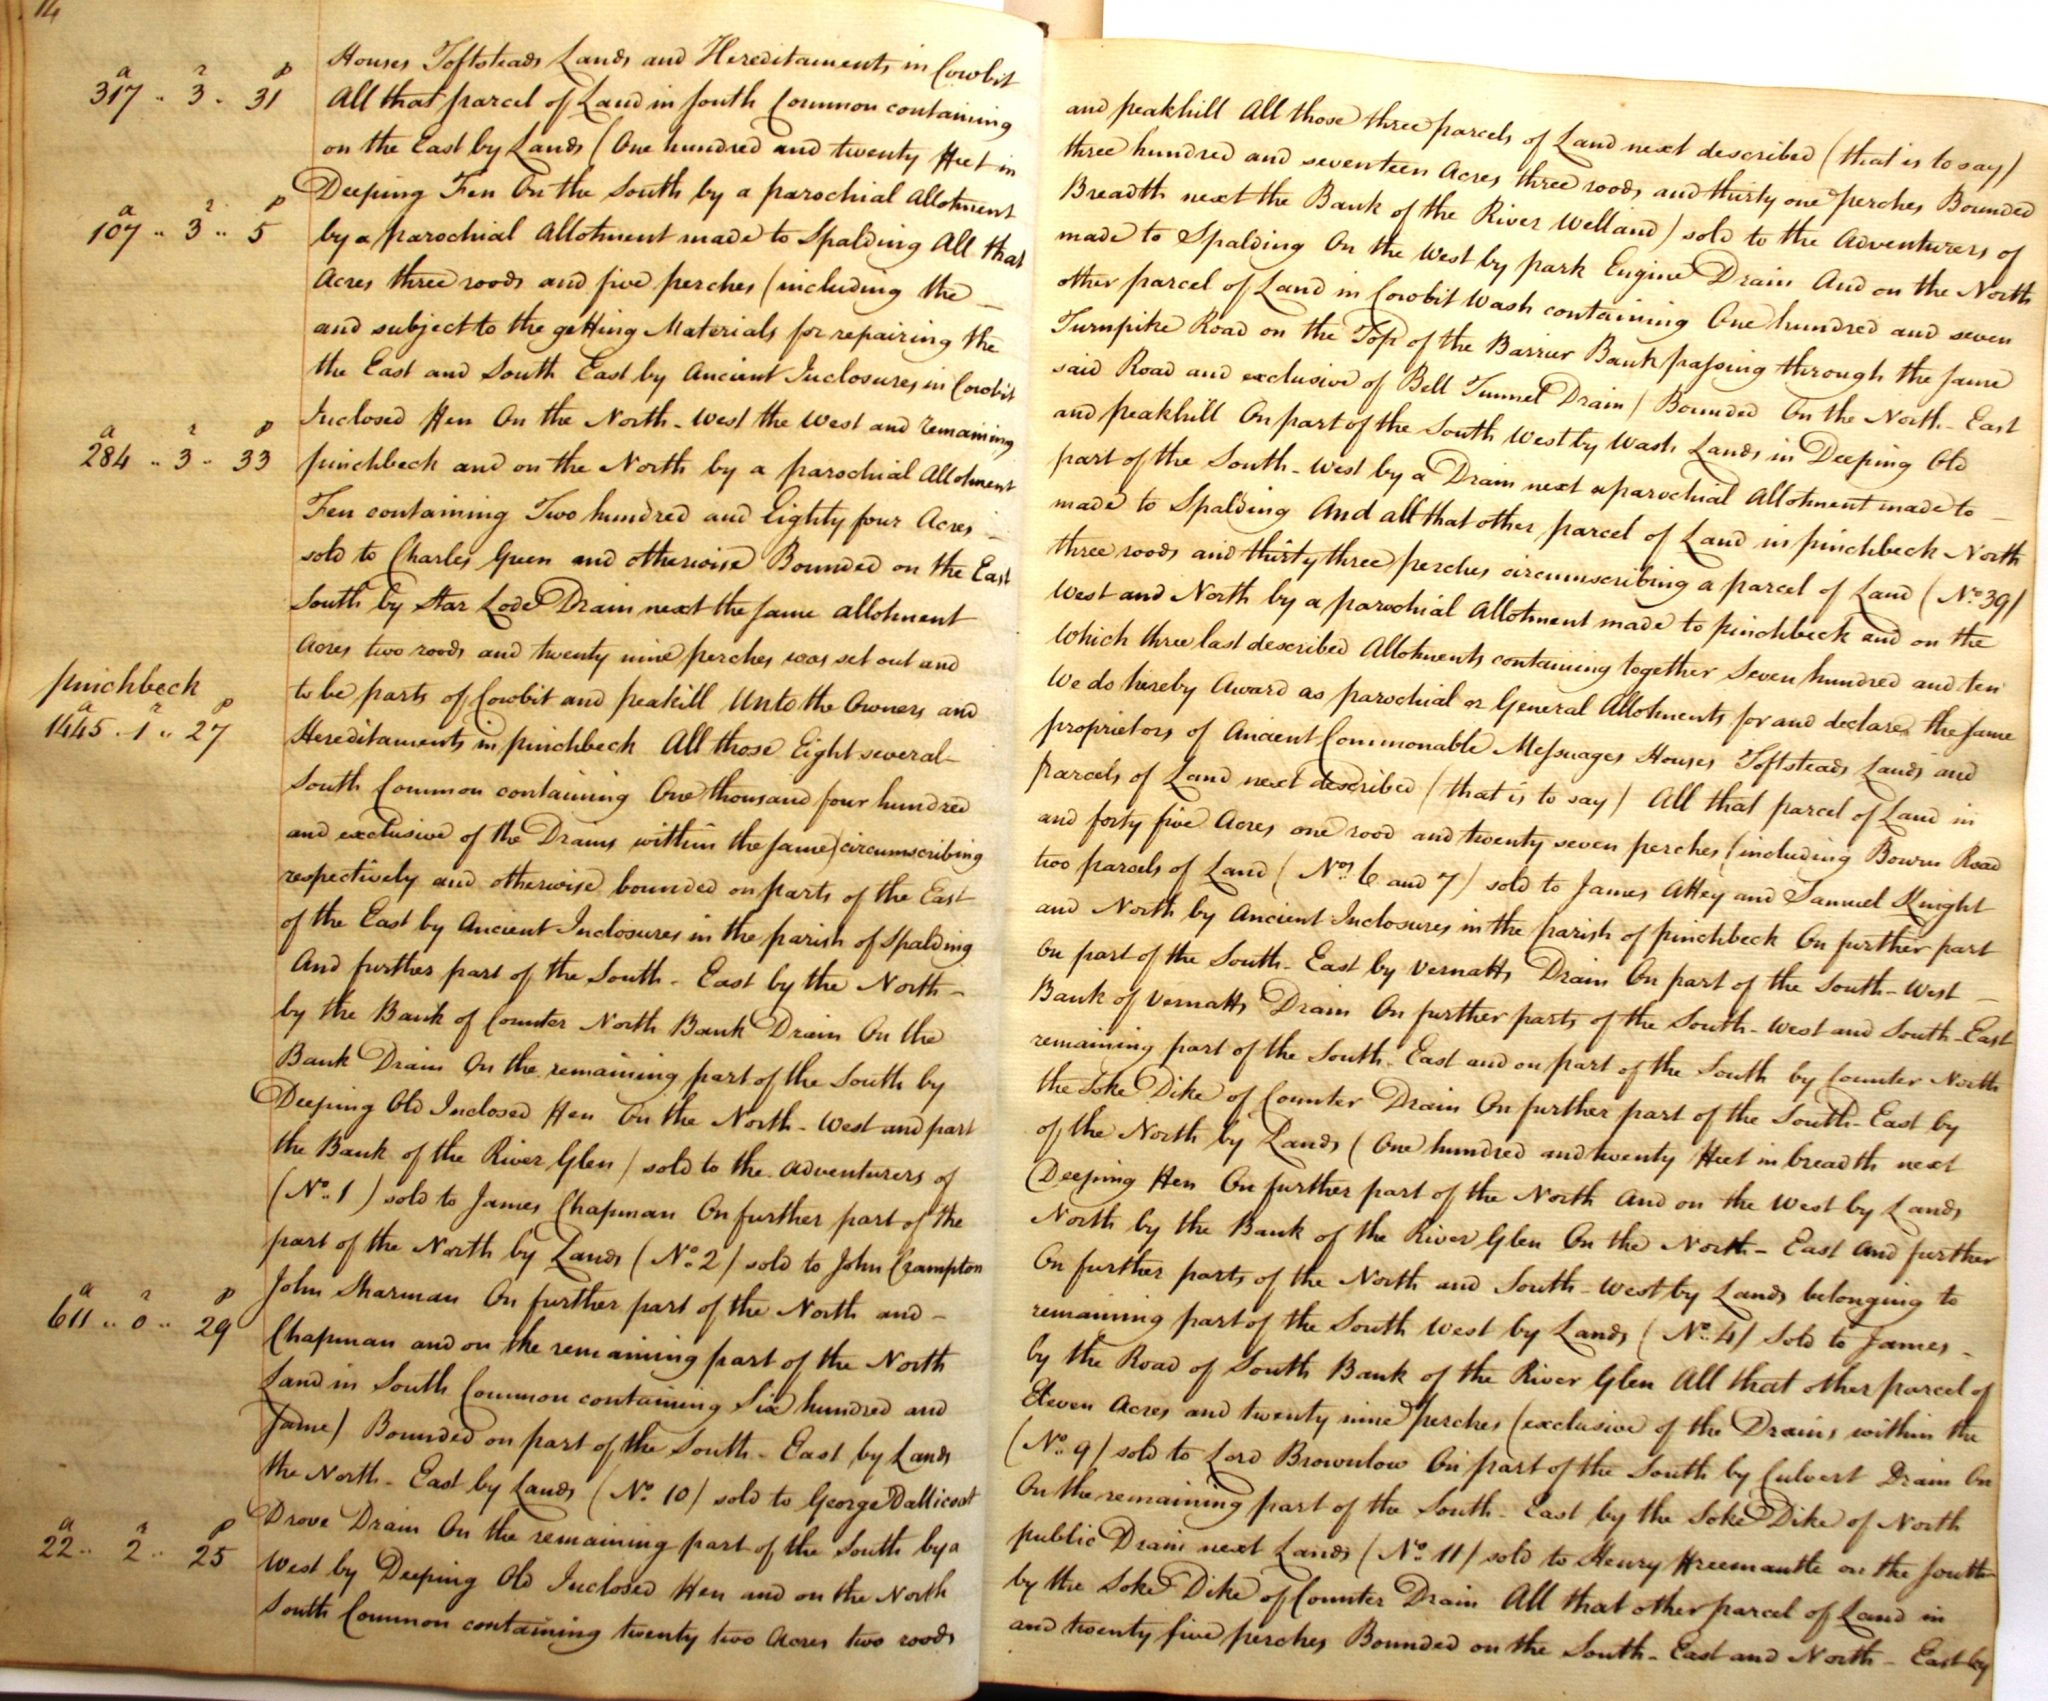 14
Houses Toftsteads Lands and Hereditaments in Cowbit and peakhill All those three parcels of Land next described (that is to say)
a r p
317 .. 3 .. 31
All that parcel of Land in South Common containing three hundred and seventeen Acres three roods and thirty one perches Bounded
on the East by Lands (One hundred and twenty Feet in Breadth next the Bank of the River Welland) sold to the Adventurers of
Deeping Fen On the South by a parochial Allotment made to Spalding On the West by park Engine Drain And on the North
a r p
107 .. 3 .. 5
by a parochial Allotment made to Spalding All that other parcel of Land in Cowbit Wash containing One hundred and seven
Acres three roods and five perches (including the — Turnpike Road on the Top of the Barrier Bank passing through the same
and subject to the getting Materials for repairing the said Road and exclusive of Bell Tunnel Drain) Bounded On the North - East
the East and South East by Ancient Inclosures in Cowbit and peakhill On part of the South West by Wash Lands in Deeping Old
Inclosed Fen On the North - West the West and remaining part of the South - West by a Drain next a parochial Allotment made to —
a r p
284 .. 3 .. 33
pinchbeck and on the North by a parochial Allotment made to Spalding And all that other parcel of Land in pinchbeck North
Fen containing Two hundred and Eighty four Acres — three roods and thirty three perches circumscribing a parcel of Land (No. 39)
sold to Charles Green and otherwise Bounded on the East West and North by a parochial Allotment made to pinchbeck and on the
South by Star Lode Drain next the same allotment Which three last described Allotments containing together Seven hundred and ten
Acres two roods and twenty nine perches was set out and We do hereby Award as parochial or General Allotments for and declare the same
pinchbeck
to be parts of Cowbit and peakill Unto the Owners and proprietors of Ancient Commonable Messuages Houses Toftsteads Lands and
a r p
1445 .. 1 .. 27
Hereditaments in pinchbeck All those Eight several - parcels of Land next described (that is to say) All that parcel of Land in
South Common containing One thousand four hundred and forty five Acres one rood and twenty seven perches (including Bourn Road
and exclusive of the Drains within the same) circumscribing two parcels of Land (Nos. 6 and 7) sold to James Attey and Samuel Knight
respectively and otherwise bounded on parts of the East and North by Ancient Inclosures in the parish of pinchbeck On further part
of the East by Ancient Inclosures in the parish of Spalding On part of the South - East by Vernatts Drain On part of the South - West —
And further part of the South - East by the North - Bank of Vernatts Drain On further parts of the South - West and South - East
by the Bank of Counter North Bank Drain On the remaining part of the South - East and on part of the South by Counter North
Bank Drain On the remaining part of the South by the Soke Dike of Counter Drain On further part of the South - East by
Deeping Old Inclosed Fen On the North - West and part of the North by Lands (One hundred and twenty Feet in breadth next
the Bank of the River Glen) sold to the Adventurers of Deeping Fen On further part of the North and on the West by Lands
(No. 1) sold to James Chapman On further part of the North by the Bank of the River Glen On the North - East and further
part of the North by Lands (No. 2) sold to John Crampton On further parts of the North and South - West by Lands belonging to
John Sharman On further part of the North and - remaining part of the South West by Lands (No. 4) Sold to James -
a r p
611 .. 0 .. 29
Chapman and on the remaining part of the North by the Road of South Bank of the River Glen All that other parcel of
Land in South Common containing Six hundred and Eleven Acres and twenty nine perches (exclusive of the Drains within the
same) Bounded on part of the South - East by Lands (No. 9) sold to Lord Brownlow On part of the South by Culvert Drain On
the North - East by Lands (No. 10) sold to George Dallicoat On the remaining part of the South - East by the Soke Dike of North
Drove Drain On the remaining part of the South by a public Drain next Lands (No. 11) sold to Henry Freemantle on the South
a r p
22 .. 2 .. 25
West by Deeping Old Inclosed Fen and on the North by the Soke Dike of Counter Drain All that other parcel of Land in
South Common containing twenty two Acres two roods and twenty five perches Bounded on the South - East and North - East by